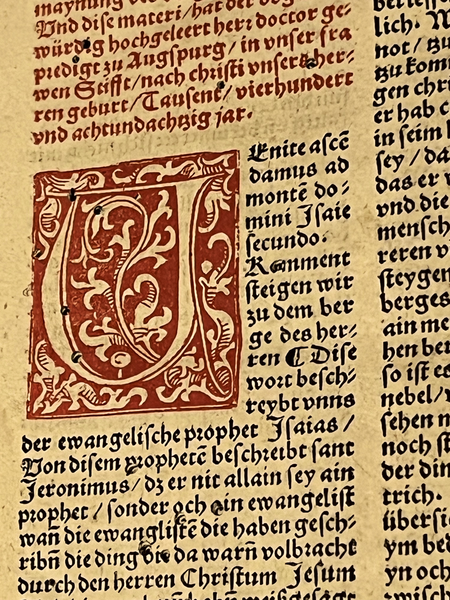 maynung
Und dise materi / hat der
würdig hochgeleert herr doctor ge⸗
predigt zu Augspurg / in vnser fra
wen Stifft / nach christi vnsers her⸗
ren geburt / Tausent / vierhundert
vnd achtundachtzig jar.
UEnite ascē
damus ad
montē do⸗
mini Isaie
secundo.
Komment
steigen wir
zu dem ber
ge des her⸗
ren ☾ Dise
wort besch⸗
reybt vnns
der ewangelische prophet Isaias /
Von disem prophetē beschreibt sant
Jeronimus / dz er nit allain sey ain
prophet / sonder och ein ewangelist
wañ die ewanglistē die haben gesch⸗
ribñ die ding die da warñ volbracht
durch den herren Christum Jesum
lich.
not / zu
zu kom
gen chri
er hab c
in seim
sey / da
das er
vnd die
mensch
reren v
steygen
berges
ain me
hen ber
so ist es
nebel /
sehen n
noch st
der din
trich.
übersi
ym bed
yn och
zwisch